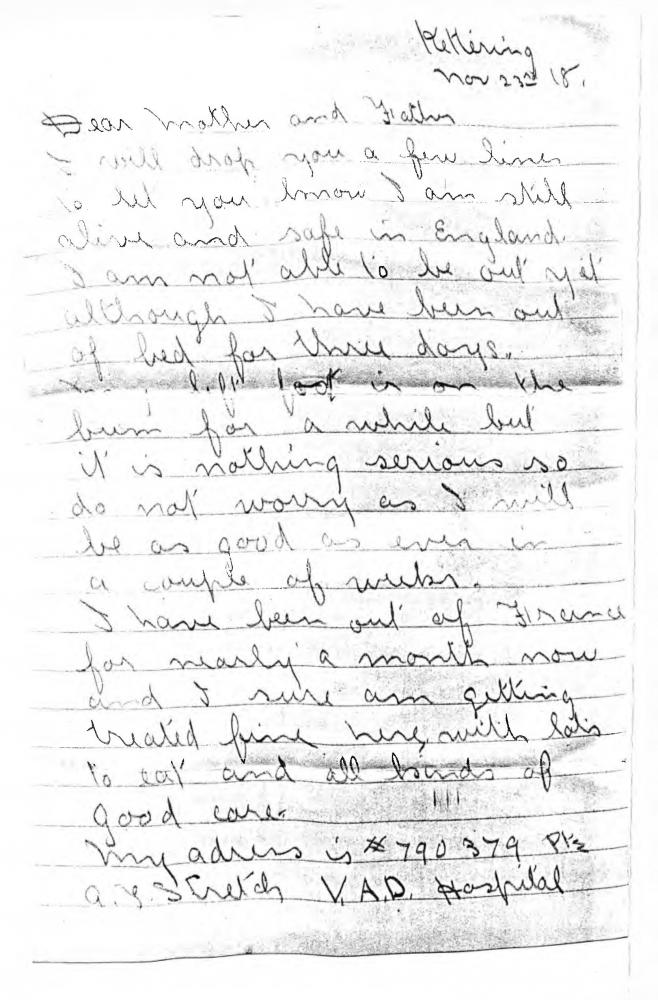 Kettering
Nov 23rd 18.
Dear Mother and Father
I will drop you a few lines
to let you know I am still
alive and safe in England.
I am not able to be out yet
although I have been out
of bed for three days.
My left foot is on the
bum for a while but
it is nothing serious so
do not worry as I will
be as good as ever in
a couple of weeks.
I have been out of France
for nearly a month now
and I sure am getting
treated fine here, with lots
to eat and all kinds of
good care.
My adress is #790379 Pte
A. Stretch V.A.D. Hospital